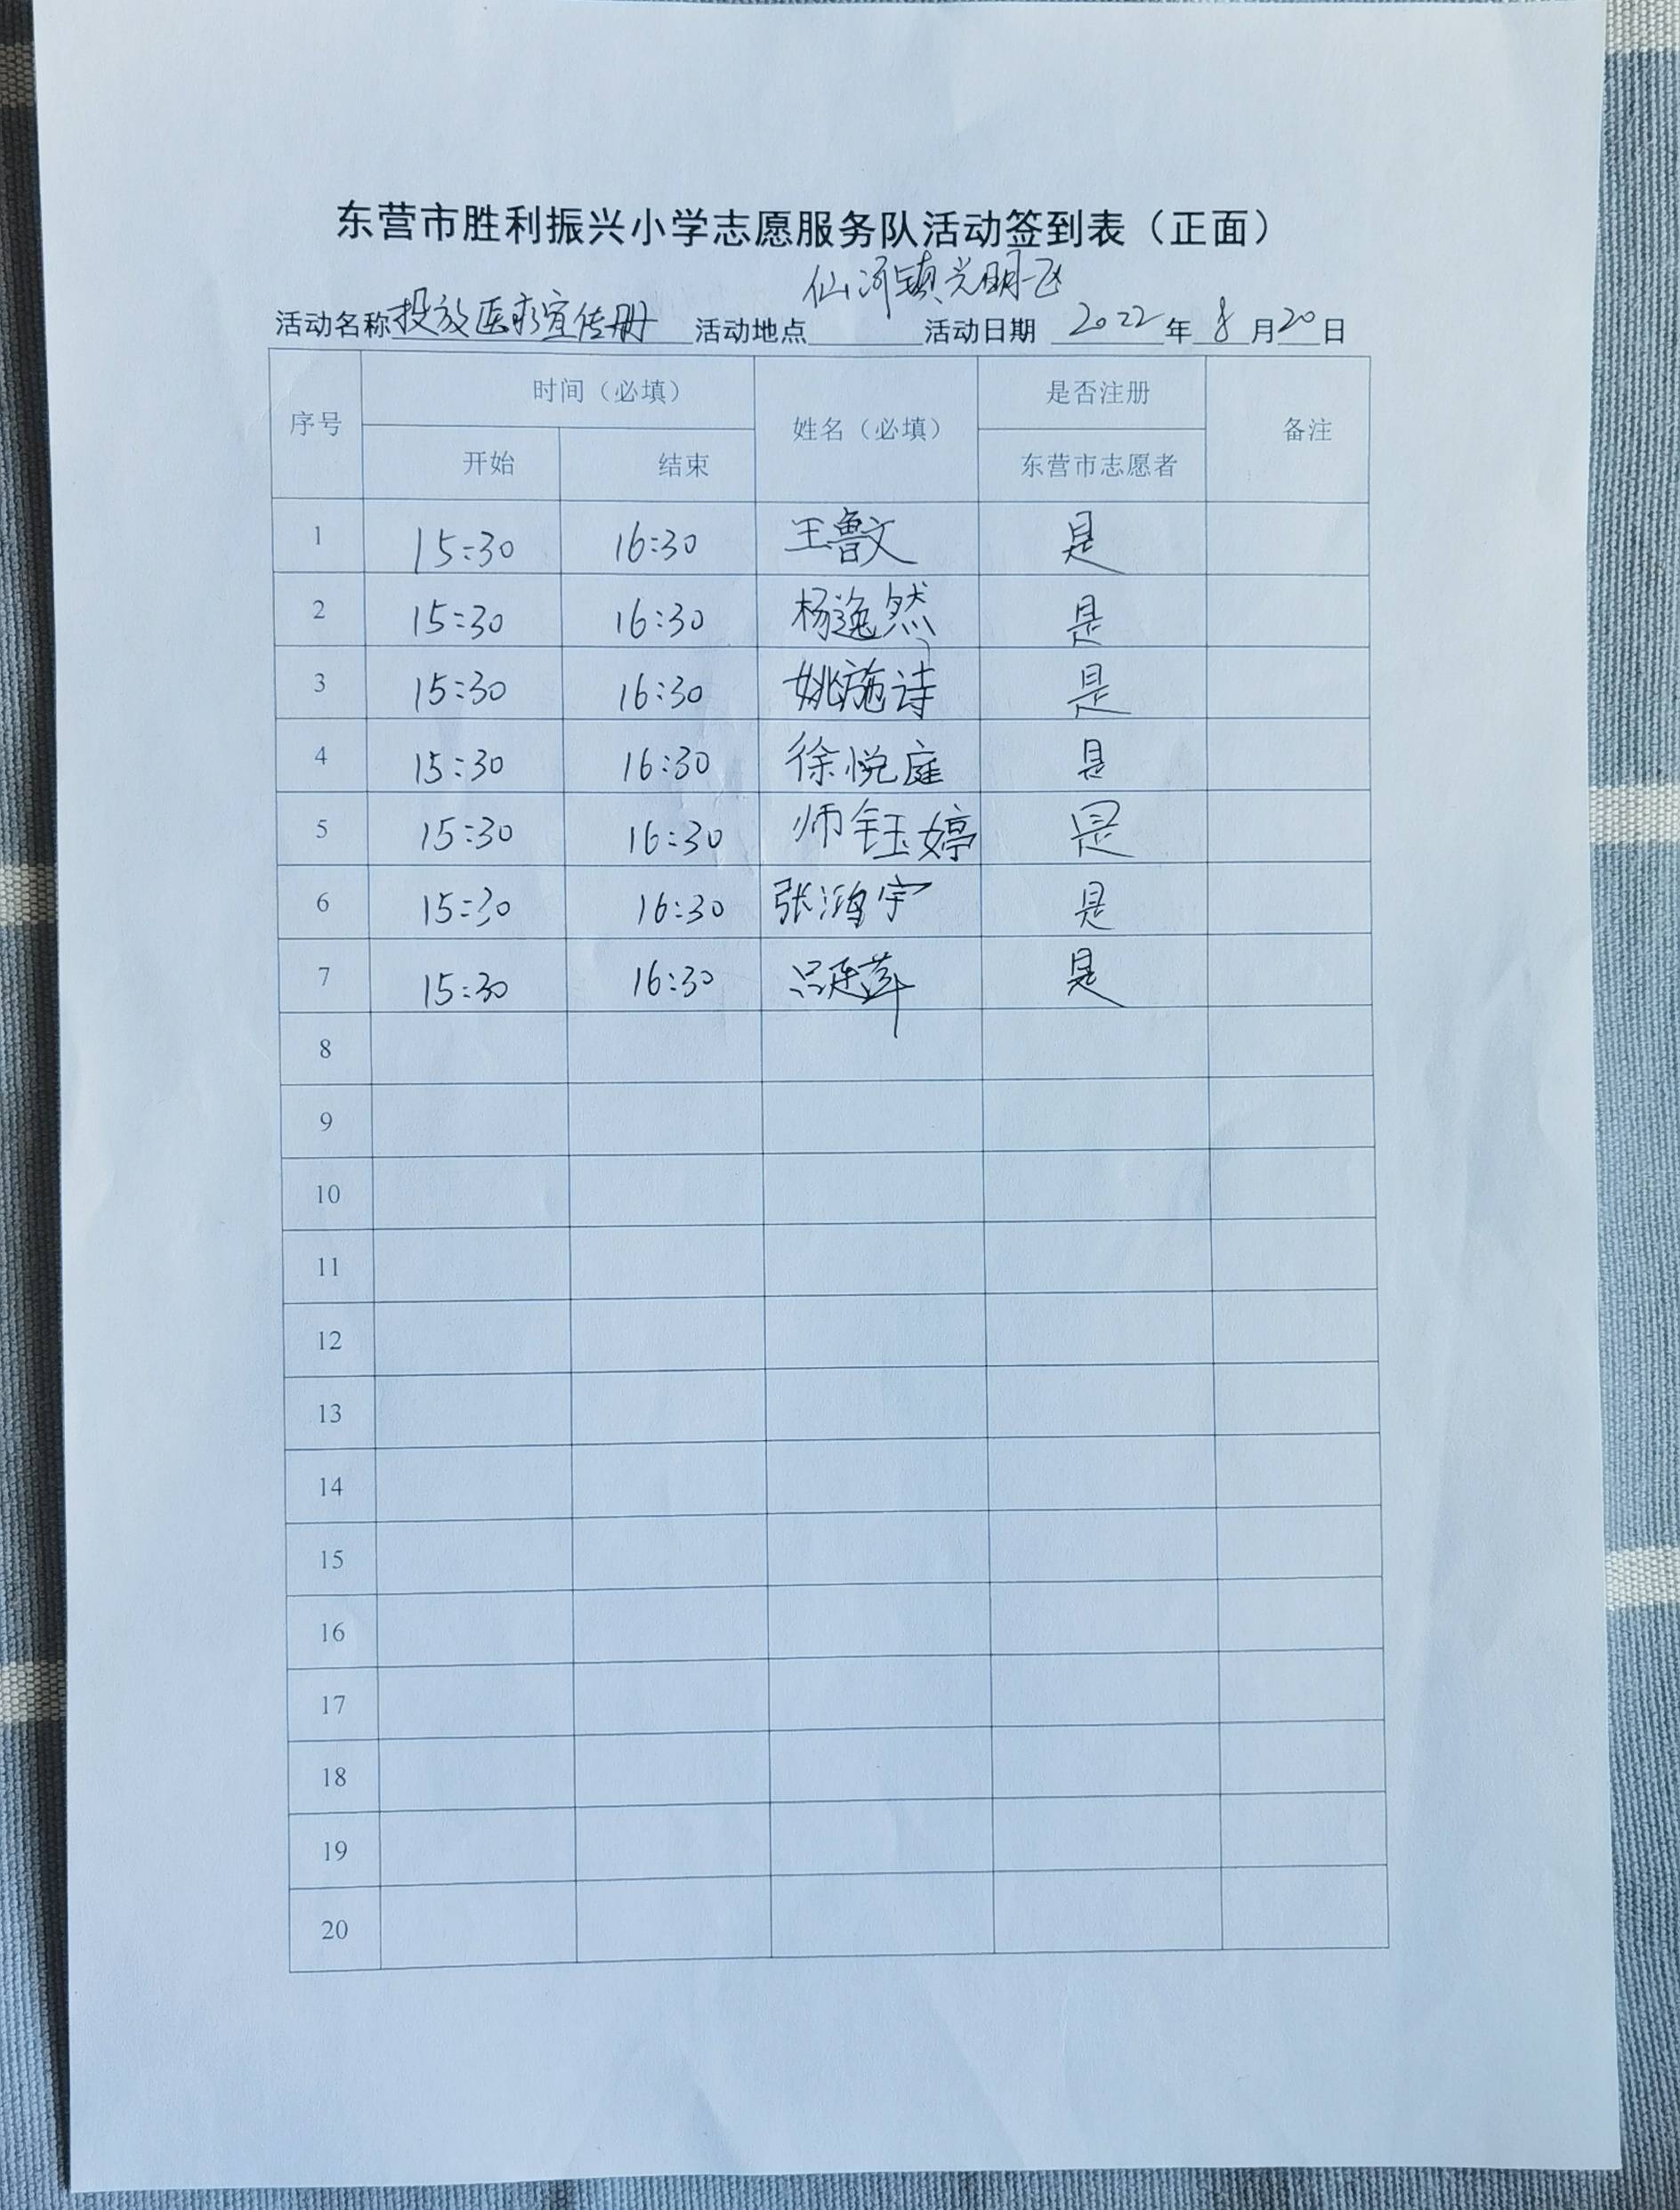 东营市胜利振兴小学志愿服务队活动签到表（正面）
仙河镇光明小区
活动名称 投放医疗宣传册 活动地点 活动日期 2022 年 8 月 20 日
序号 时间（必填） 姓名（必填） 是否注册 备注
开始 结束 东营市志愿者
1 15:30 16:30 王鲁文 是
2 15:30 16:30 杨逸然 是
3 15:30 16:30 姚施诗 是
4 15:30 16:30 徐悦庭 是
5 15:30 16:30 师钰婷 是
6 15:30 16:30 张鸿宇 是
7 15:30 16:30 吕延萍 是
8
9
10
11
12
13
14
15
16
17
18
19
20